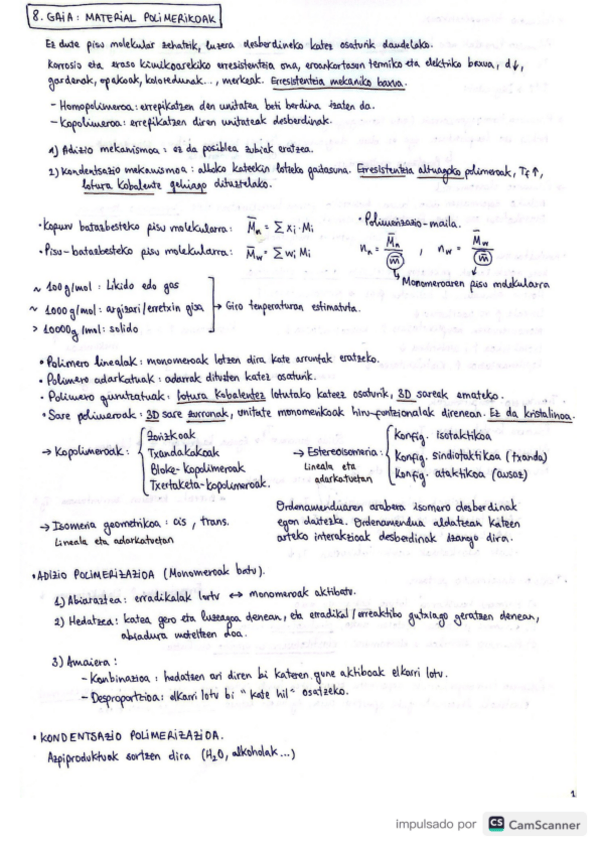 8. GAIA: MATERIAL POLIMERIKOAK
Ez dute pisu molekular zehatzik, luzera desberdineko katez osaturik daudelako.
Korrosio eta eraso kimikoarekiko erresistentzia ona, eroankortasun termiko eta elektriko baxua, d↓,
gardenak, opakoak, koloredunak..., merkeak. Erresistentzia mekaniko baxua.
- Homopolimeroa: errepikatzen den unitatea beti berdina izaten da.
- Kopolimeroa: errepikatzen diren unitateak desberdinak.
1) Adizio mekanismoa: ez da posiblea zubiak eratzea.
2) Kondentsazio mekanismoa: alboko kateekin lotzeko gaitasuna. Erresistentzia altuagoko polimeroak, Tf↑,
lotura kobalente gehiago dituztelako.
· Kopuru batazbesteko pisu molekularra: M̄n = Σ xi · Mi
· Pisu-batazbesteko pisu molekularra: M̄w = Σ wi Mi
· Polimerizazio-maila.
nn = M̄n / m̄ , nw = M̄w / m̄
↳ Monomeroaren pisu molekularra
~ 100 g/mol: Likido edo gas
~ 1000 g/mol: argizari/erretxin gisa
> 10000 g/mol: solido
→ Giro tenperaturan estimatuta.
· Polimero linealak: monomeroak lotzen dira kate arruntak eratzeko.
· Polimero adarkatuak: adarrak dituzten katez osaturik.
· Polimero gurutzatuak: lotura kobalentez lotutako kateez osaturik, 3D sareak emateko.
· Sare polimeroak: 3D sare zurrunak, unitate monomerikoak hiru-funtzionalak direnean. Ez da kristalinoa.
→ Kopolimeroak:
Zorizkoak
Txandakakoak
Bloke-kopolimeroak
Txertaketa-kopolimeroak.
→ Estereoisomeria:
Lineala eta
adarkatuetan
Konfig. isotaktikoa
Konfig. sindiotaktikoa (txanda)
Konfig. ataktikoa (ausaz)
→ Isomeria geometrikoa: cis, trans.
Lineala eta adarkatuetan
Ordenamenduaren arabera isomero desberdinak
egon daitezke. Ordenamendua aldatzean kateen
arteko interakzioak desberdinak izango dira.
· ADIZIO POLIMERIZAZIOA (Monomeroak batu).
1) Abiaraztea: erradikalak lortu ↔ monomeroak aktibatu.
2) Hedatzea: katea gero eta luzeagoa denean, eta erradikal/erreaktibo gutxiago geratzen denean,
abiadura moteltzen doa.
3) Amaiera:
- Konbinazioa: hedatzen ari diren bi kateren gune aktiboak elkarri lotu.
- Desproportzioa: elkarri lotu bi "kate hil" osatzeko.
· KONDENTSAZIO POLIMERIZAZIOA.
Azpiproduktuak sortzen dira (H2O, alkoholak...)
1
impulsado por CS CamScanner